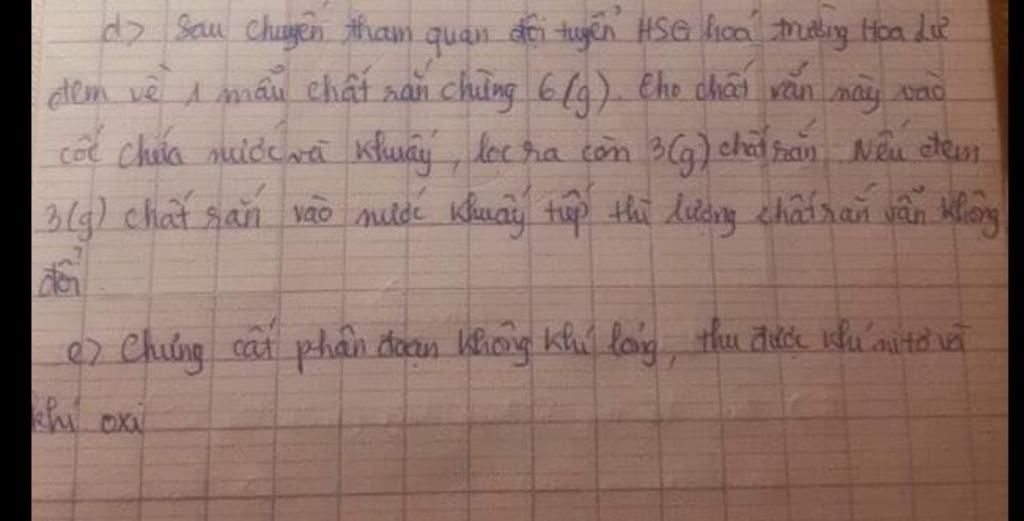 d> Sau chuyến tham quan đội tuyển HSG hoá trường Hoa Lư
đem về 1 mẫu chất rắn chừng 6(g). Cho chất rắn này vào
cốc chứa nước và khuấy, lọc ra còn 3(g) chất rắn. Nếu đem
3(g) chất rắn vào nước khuấy tiếp thì lượng chất rắn vẫn không
đổi.
e> Chưng cất phân đoạn không khí lỏng, thu được khí nitơ và
khí oxi